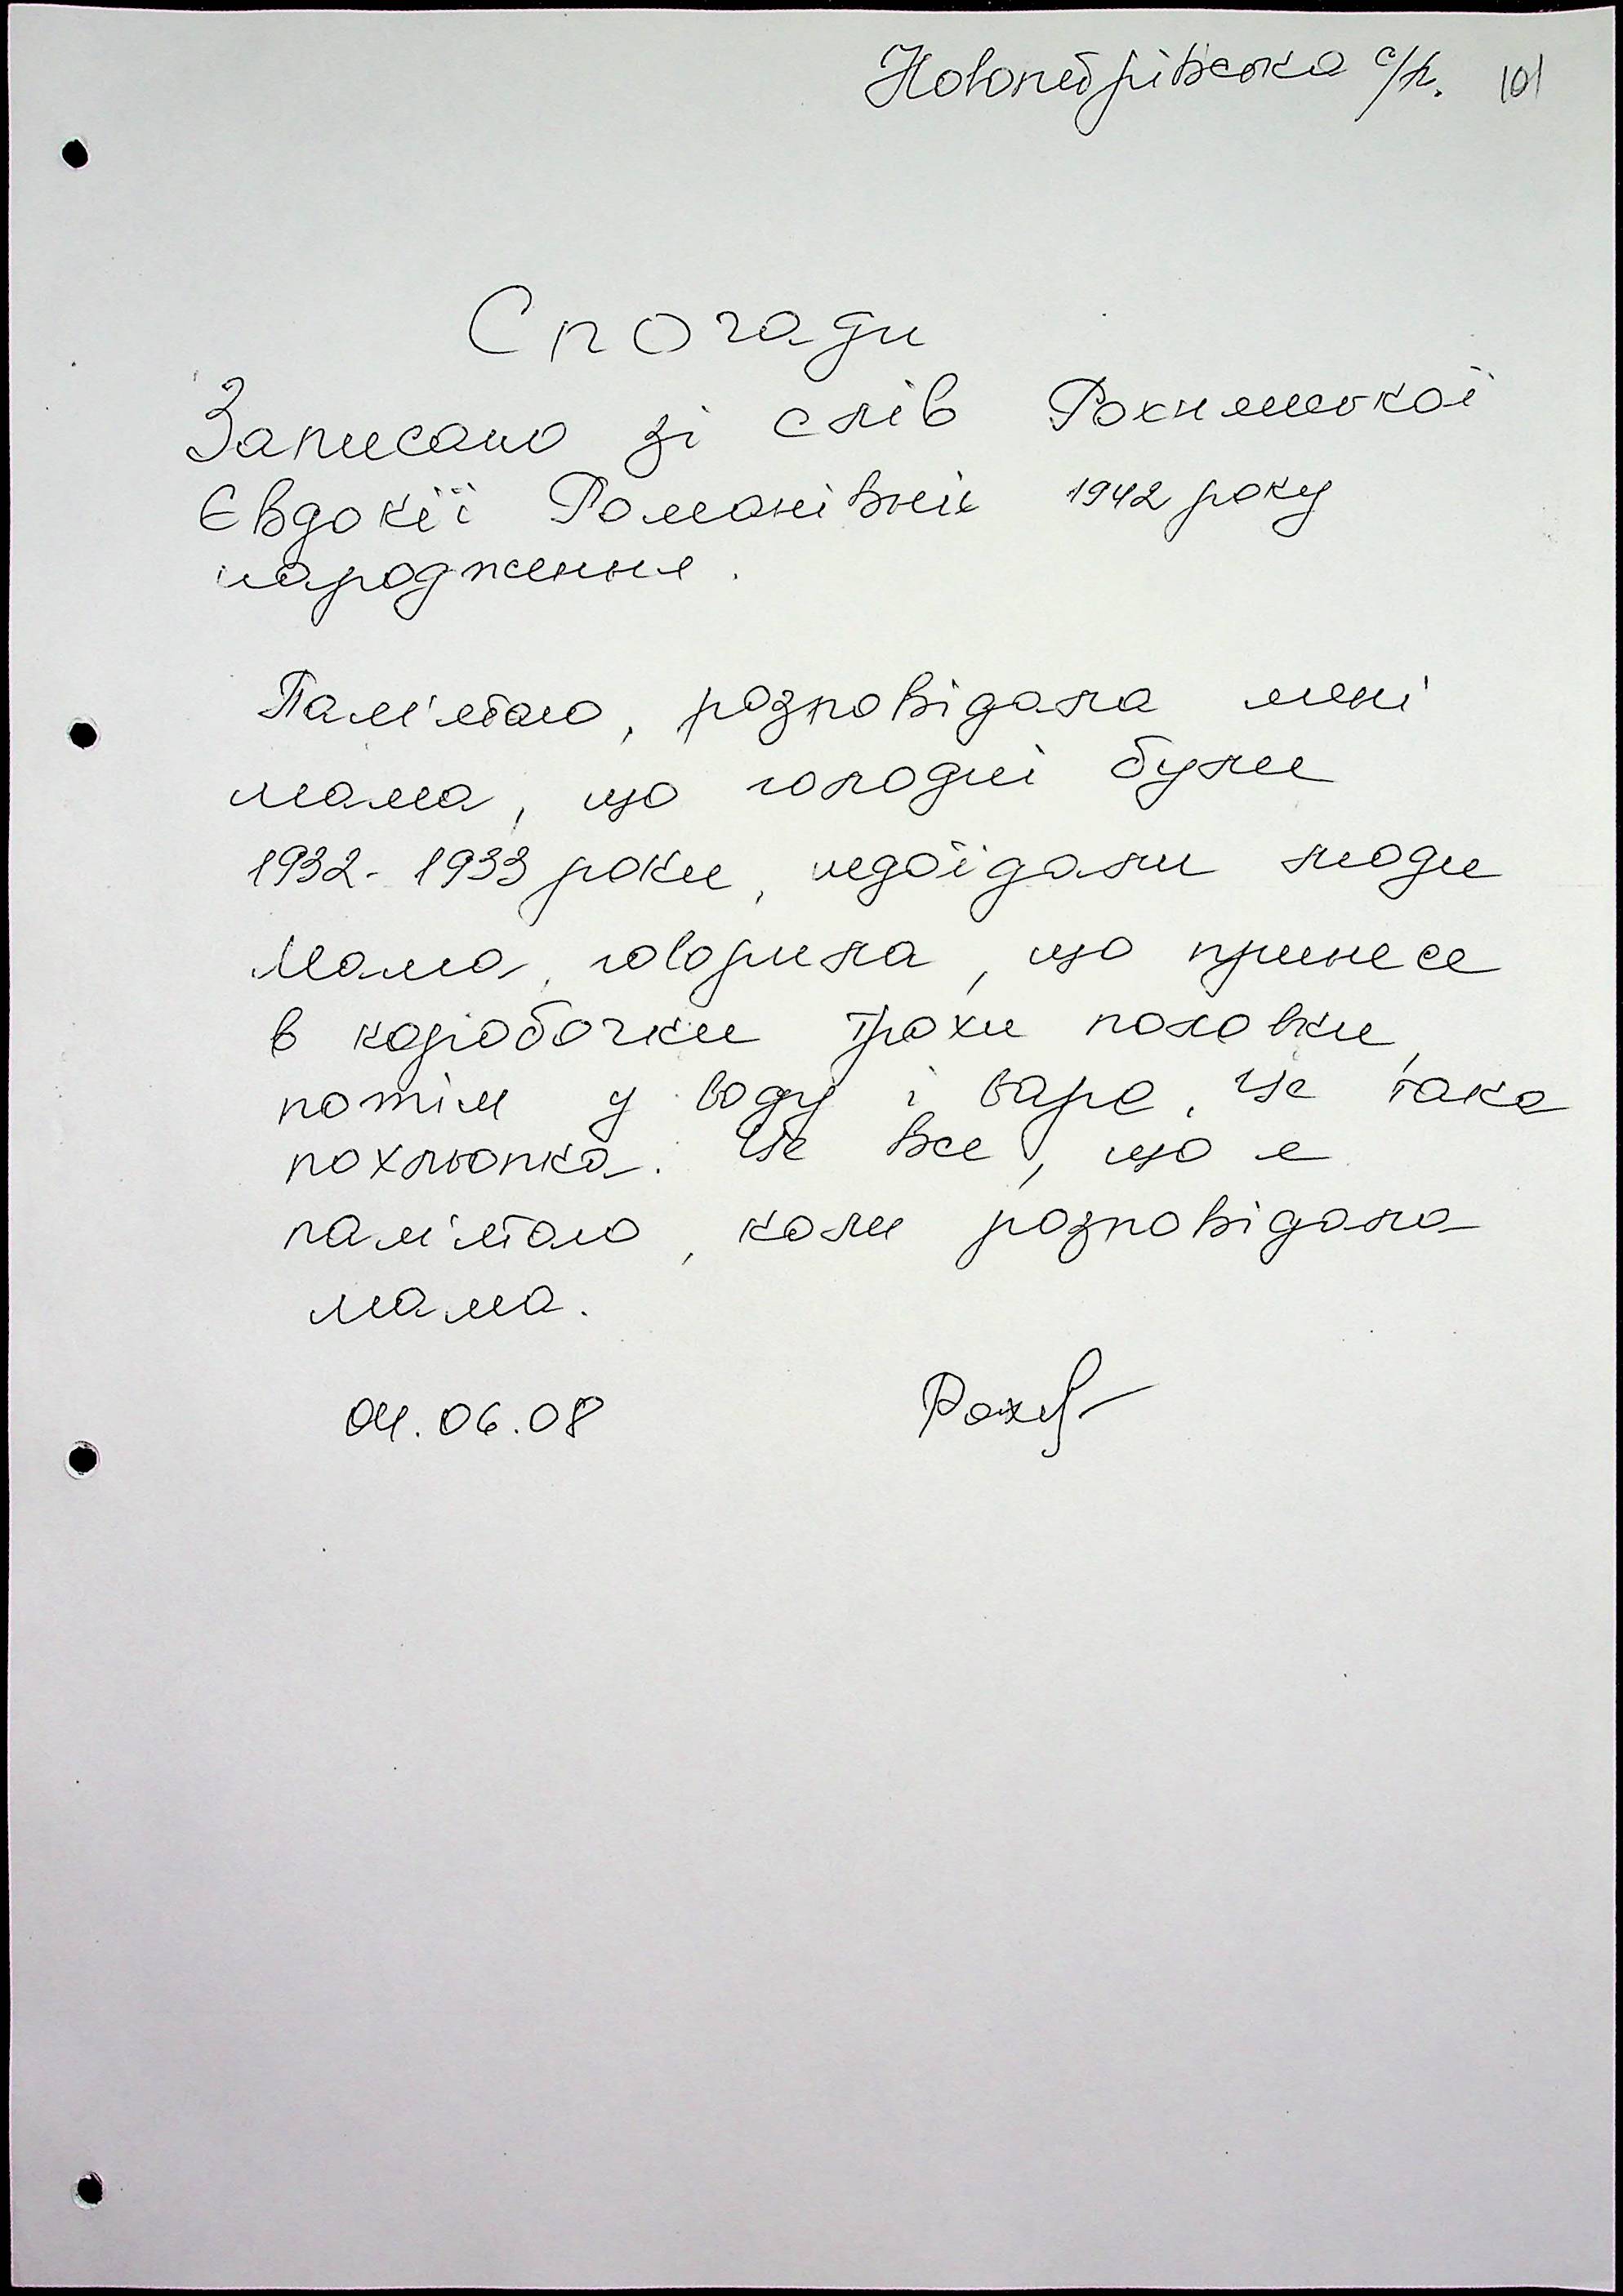 Новопетрівська с/р. 101
Спогади
Записано зі слів Рохимської
Євдокії Романівни 1942 року
народження.
Пам'ятаю, розповідала мені
мама, що голодні були
1932-1933 роки, недоїдали люди
Мама, говорила, що принесе
в коробочки трохи половки,
потім у воду і варе, це така
похльопка. Це все, що я
пам'ятаю, коли розповідала
мама.
04.06.08